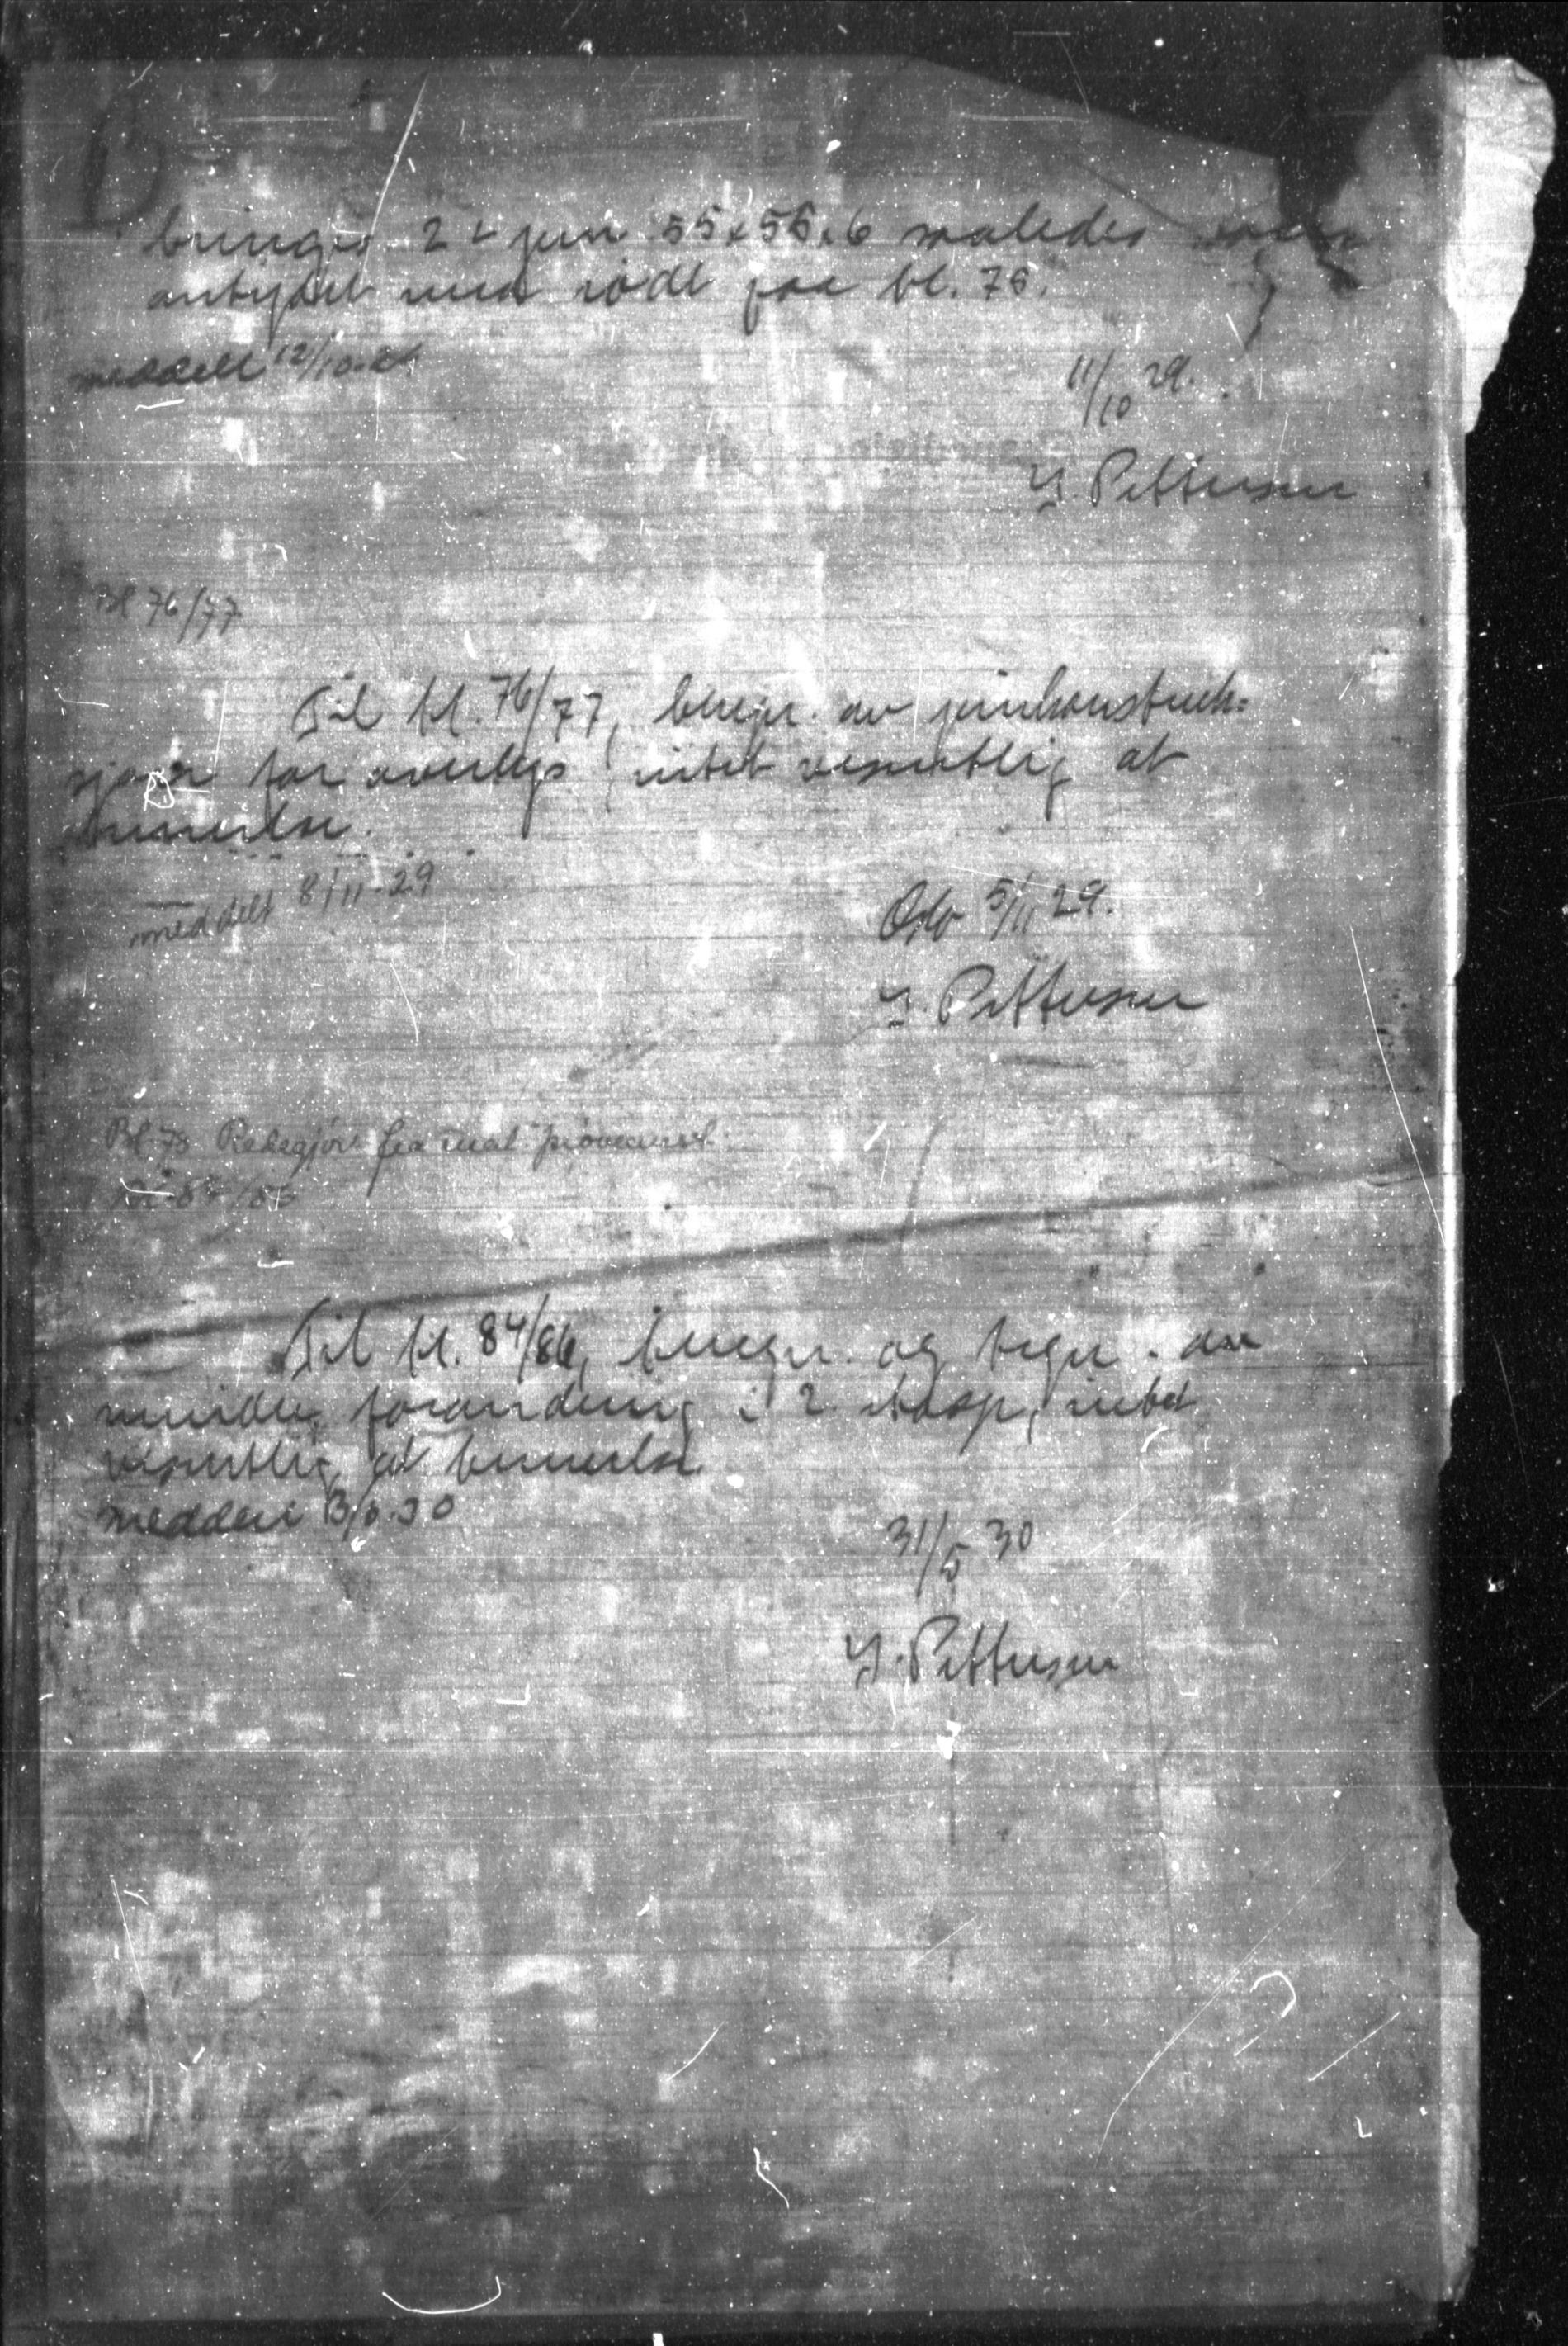 bringes 2 L jern 55x55x6 saaledes som
antydet med rødt paa bl. 75.
meddelt 12/10.29
11/10 29.
Y. Pettersen
Bl 76/77
Til bl. 76/77, beregn. av jernkonstruk=
sjoner for overlys, intet vesentlig at
bemerke.
meddelt 8/11-29
Oslo 5/11 29.
Y. Pettersen
Bl 78 Redegjør fra mat prøveanst.
Til bl. 84/86, beregn. og tegn. av
mindre forandring i 2 etasje, intet
vesentlig at bemerke.
meddelt 3/6.30
31/5 30
Y. Pettersen